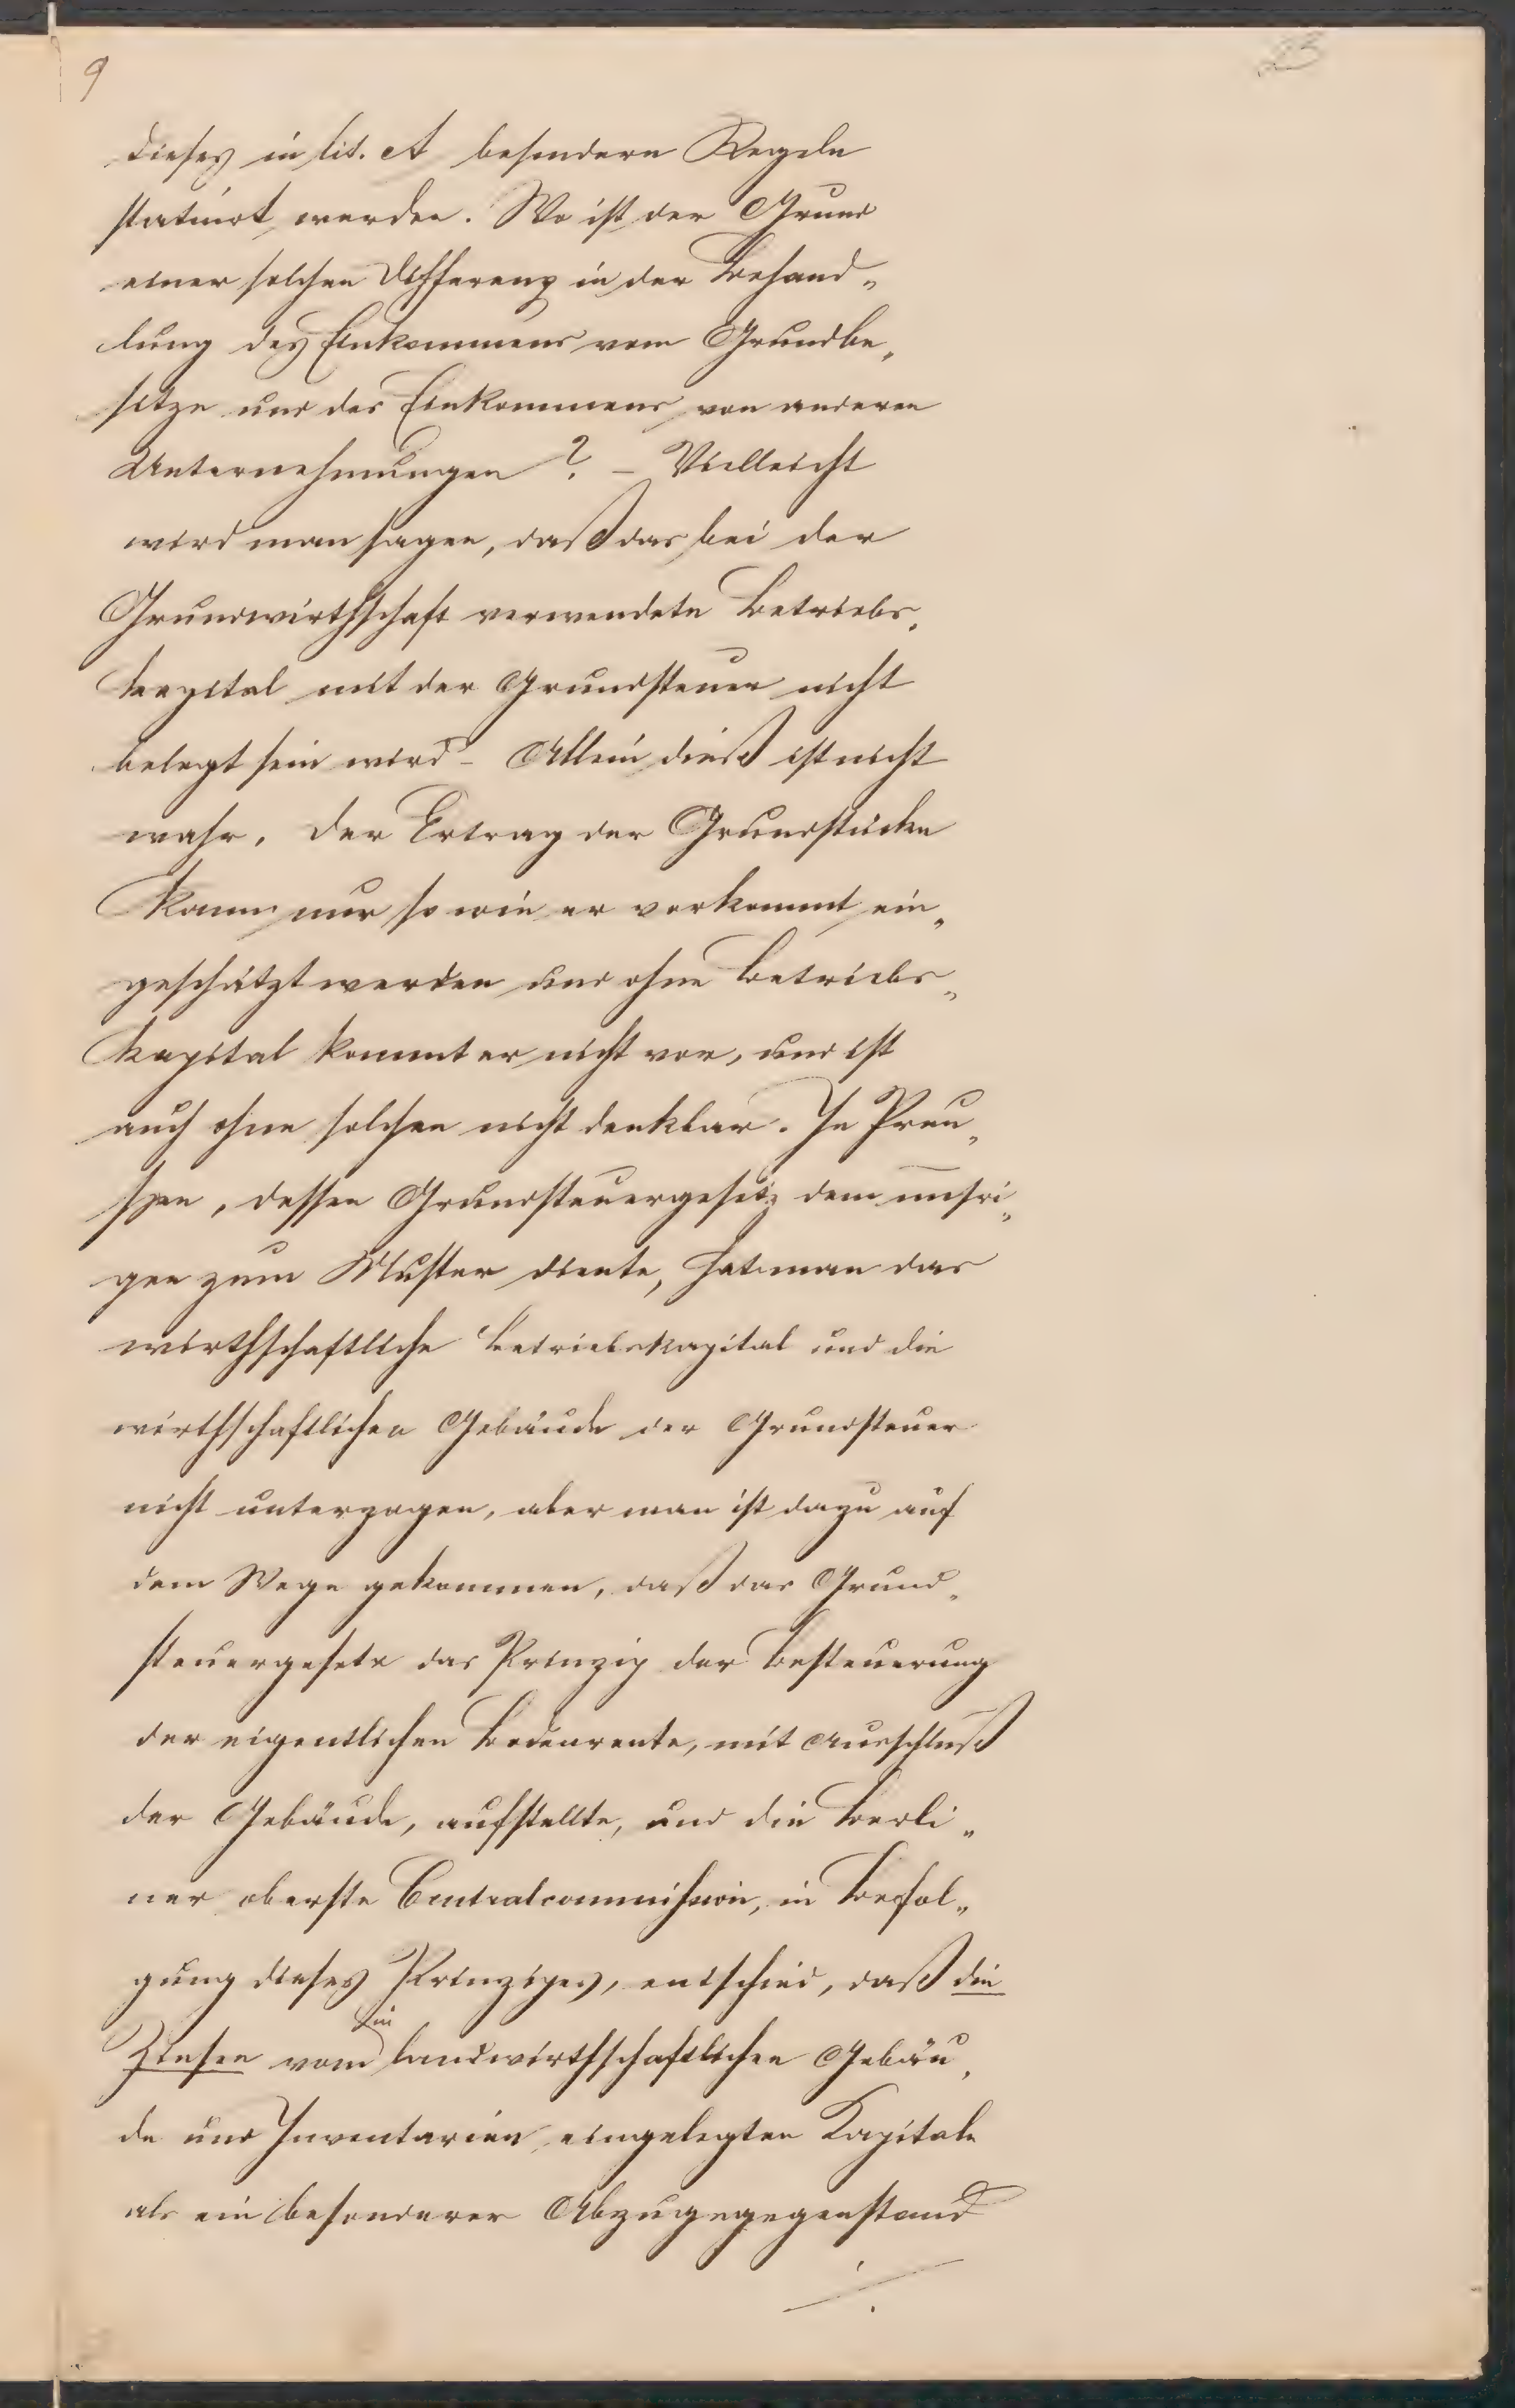 9
23
dieses in lit. A besondern Regeln
statuirt werden. Wo ist der Grund
einer solchen Differenz in der Behand„
lung des Einkommens vom Grundbe„
sitze und des Einkommens von anderen
Unternehmungen? – Vielleicht
wird man sagen, daß das bei der
Grundwirthschaft verwendete Betriebs„
kapital mit der Grundsteuer nicht
belegt sein wird – Allein dieß ist nicht
wahr. Der Ertrag der Grundstücke
kann nur so wie er vorkommt ein„
geschätzt werden und ohne Betriebs„
kapital kommt er nicht vor, und ist
auch ohne solchen nicht denkbar. In Preu„
ssen, dessen Grundsteuergesetz dem unsri„
gen zum Muster diente, hat man das
wirthschaftliche Betriebskapital und die
wirthschaftlichen Gebäude der Grundsteuer
nicht unterzogen, aber man ist dazu auf
dem Wege gekommen, daß das Grund„
steuergesetz das Prinzip der Besteuerung
der eigentlichen Bodenrente, mit Ausschluß
der Gebäude, aufstellte, und die Berli„
ner oberste Centralcommission, in Befol„
gung dieses Prinzipes, entschied, daß die
Zinsen vom in landwirthschaftlichen Gebäu„
de und Inventarien eingelegten Kapitale
als ein besonderer Abzugsgegenstand
./.